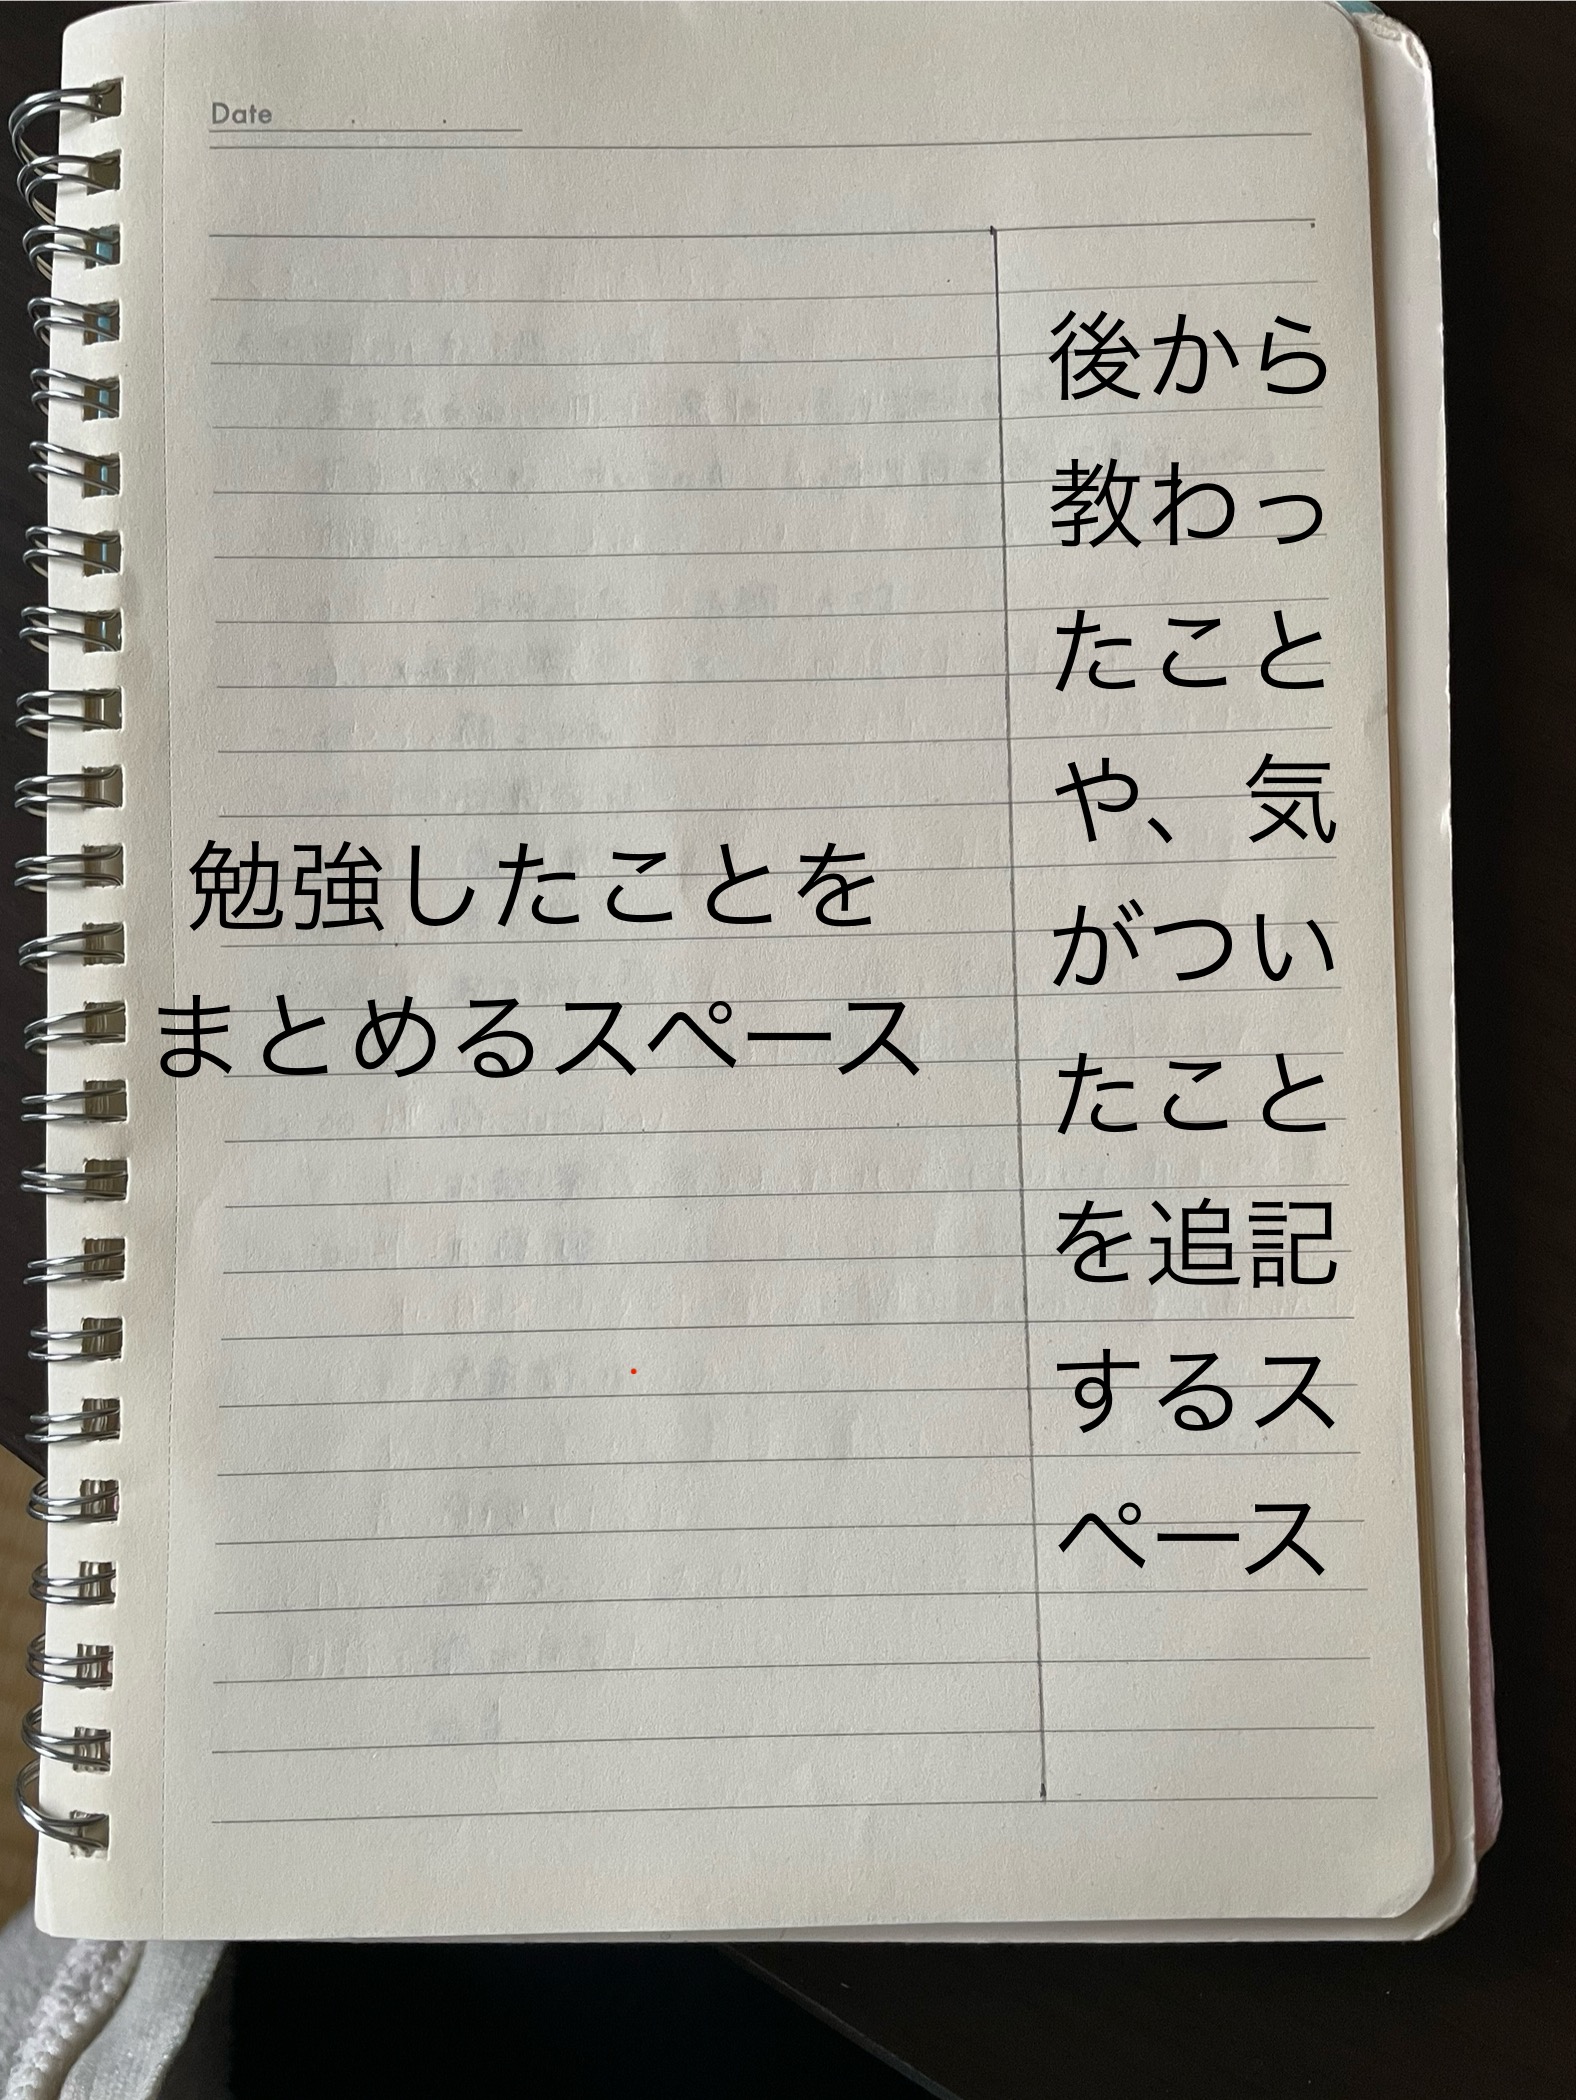 Date
勉強したことを
まとめるスペース
後から
教わっ
たこと
や、気
がつい
たこと
を追記
するス
ペース